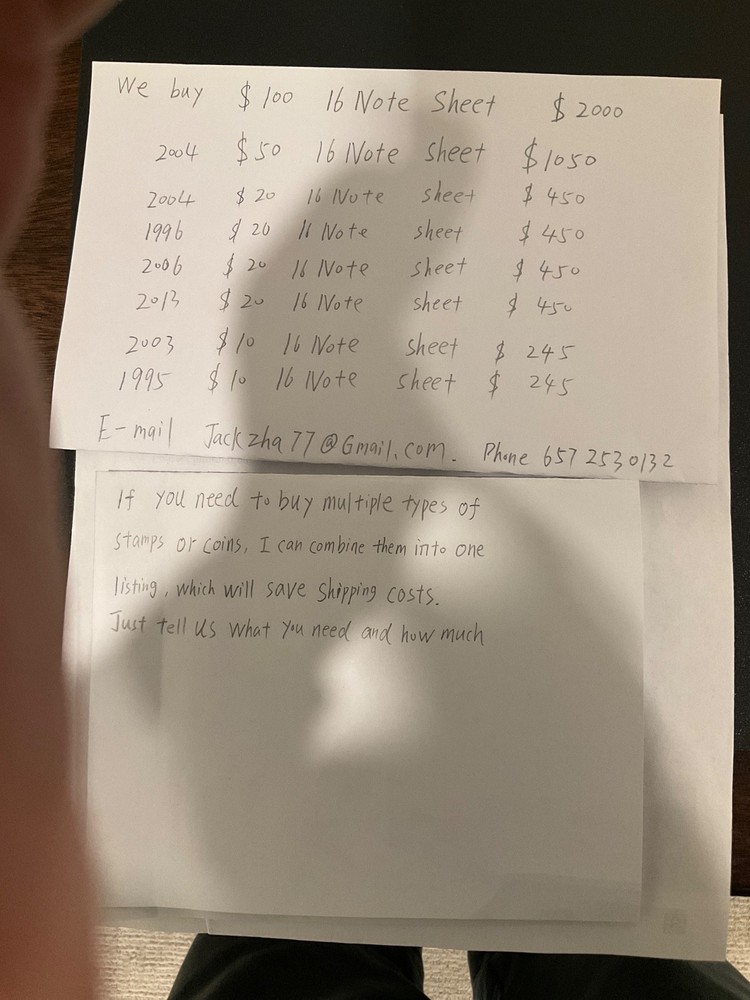 We buy $100 16 Note Sheet $2000
2004 $50 16 Note sheet $1050
2004 $20 16 Note sheet $450
1996 $20 16 Note sheet $450
2006 $20 16 Note sheet $450
2013 $20 16 Note sheet $450
2003 $10 16 Note sheet $245
1995 $10 16 Note sheet $245
E-mail Jackzha77@Gmail.com. Phone 657 253 0132
If you need to buy multiple types of
stamps or coins, I can combine them into one
listing, which will save shipping costs.
Just tell us what you need and how much